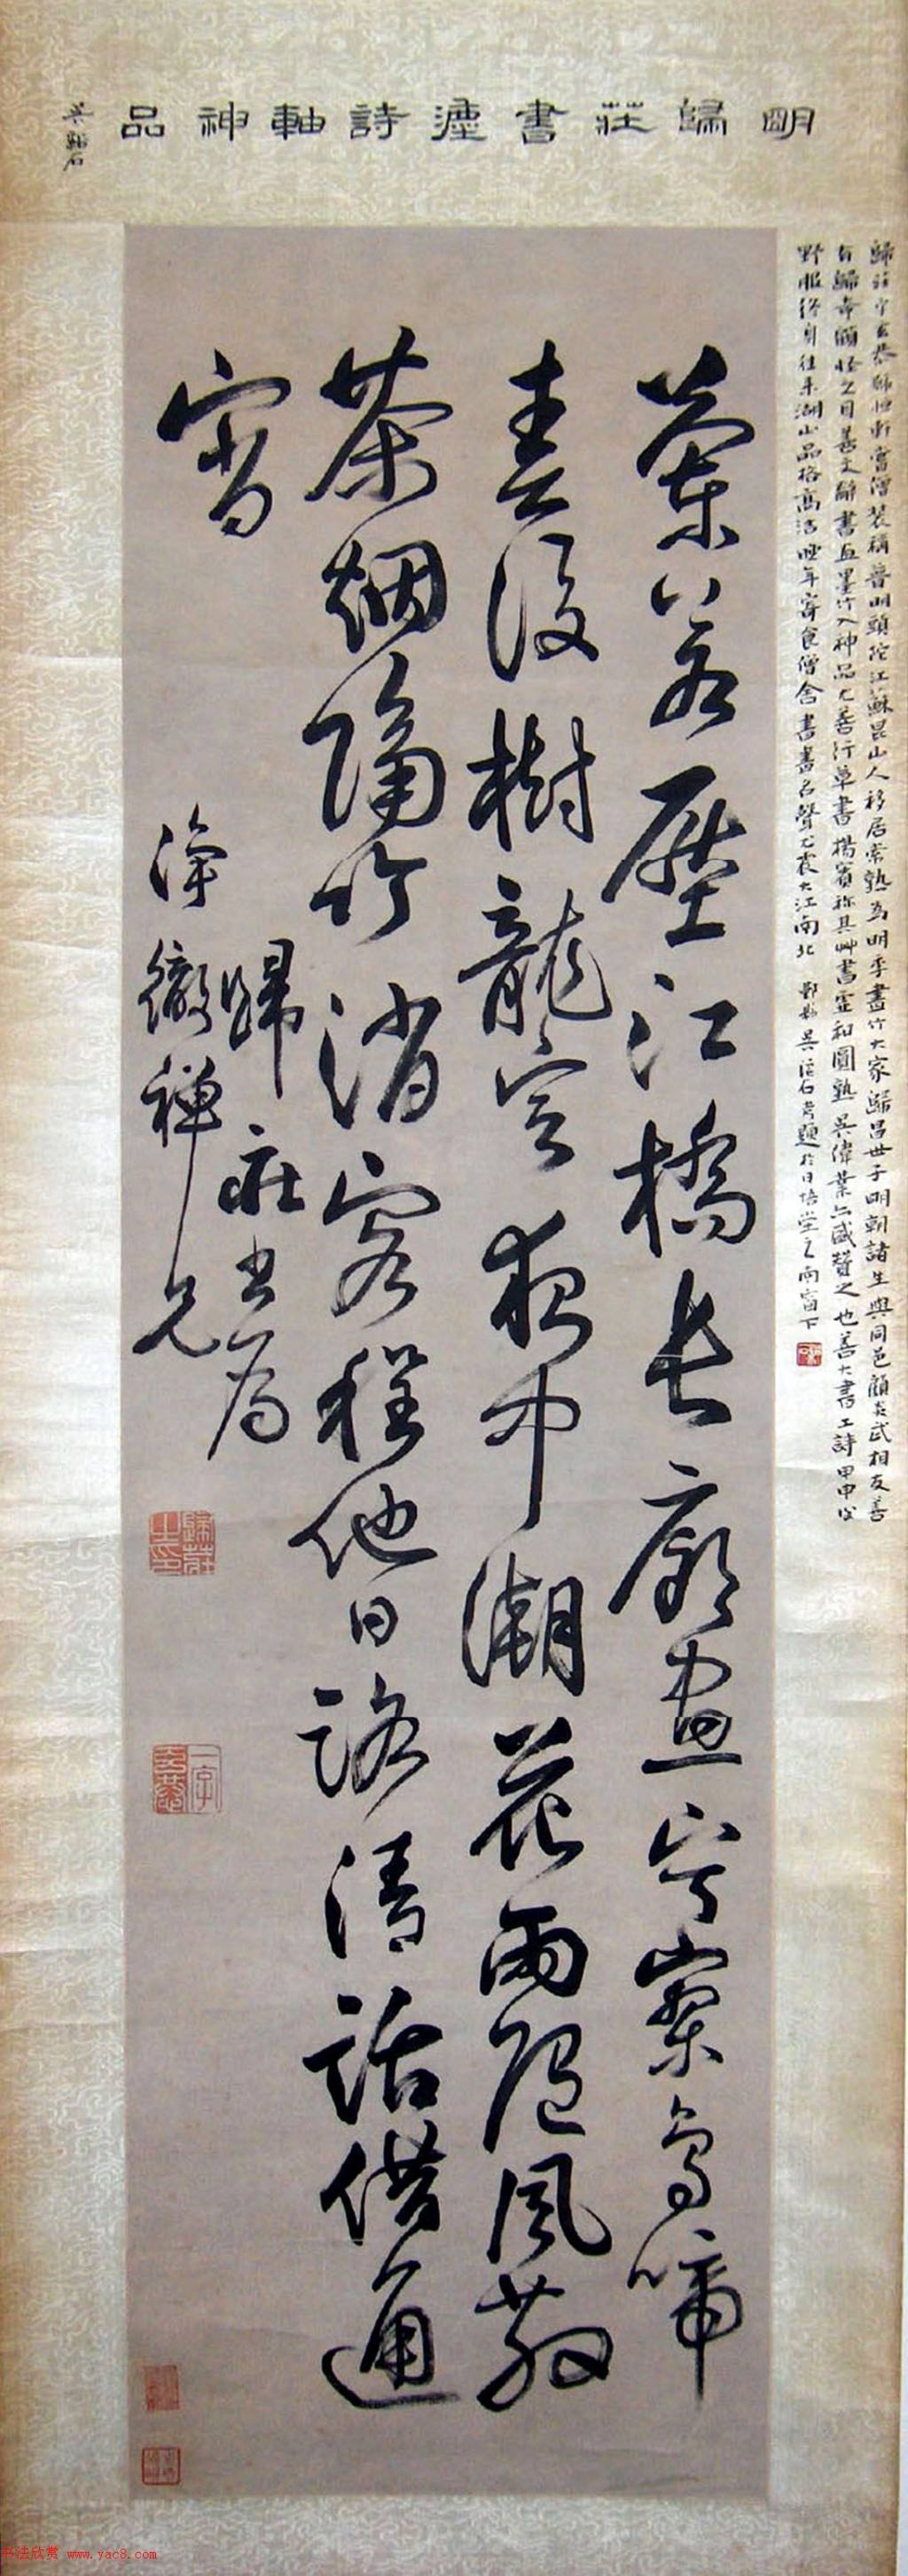 明歸莊書詩軸神品
歸莊字玄恭號恒軒嘗僧裝稱普明頭陀江蘇昆山人移居常熟為明季畫竹大家歸昌世子明朝諸生與同邑顧炎武相友善
有歸奇顧怪之目善文辭書畫墨竹入神品尤善行草書楊賓称其艸書靈和圓熟吳偉業亦盛贊之也善大書工詩甲申後
野服終身往來湖山品格高洁晚年寄食僧舍書畫名聲尤震大江南北 吳石題於日悟堂之南窗下
蘭若壓江橋長廊晝寂寥鳥啼
春後樹龍定夜中潮花雨随風散
茶烟隔竹消客程他日路清話借通
宵
歸莊書為
淨徹禪兄
歸莊之印
一字玄恭
书法欣赏 www.yac8.com